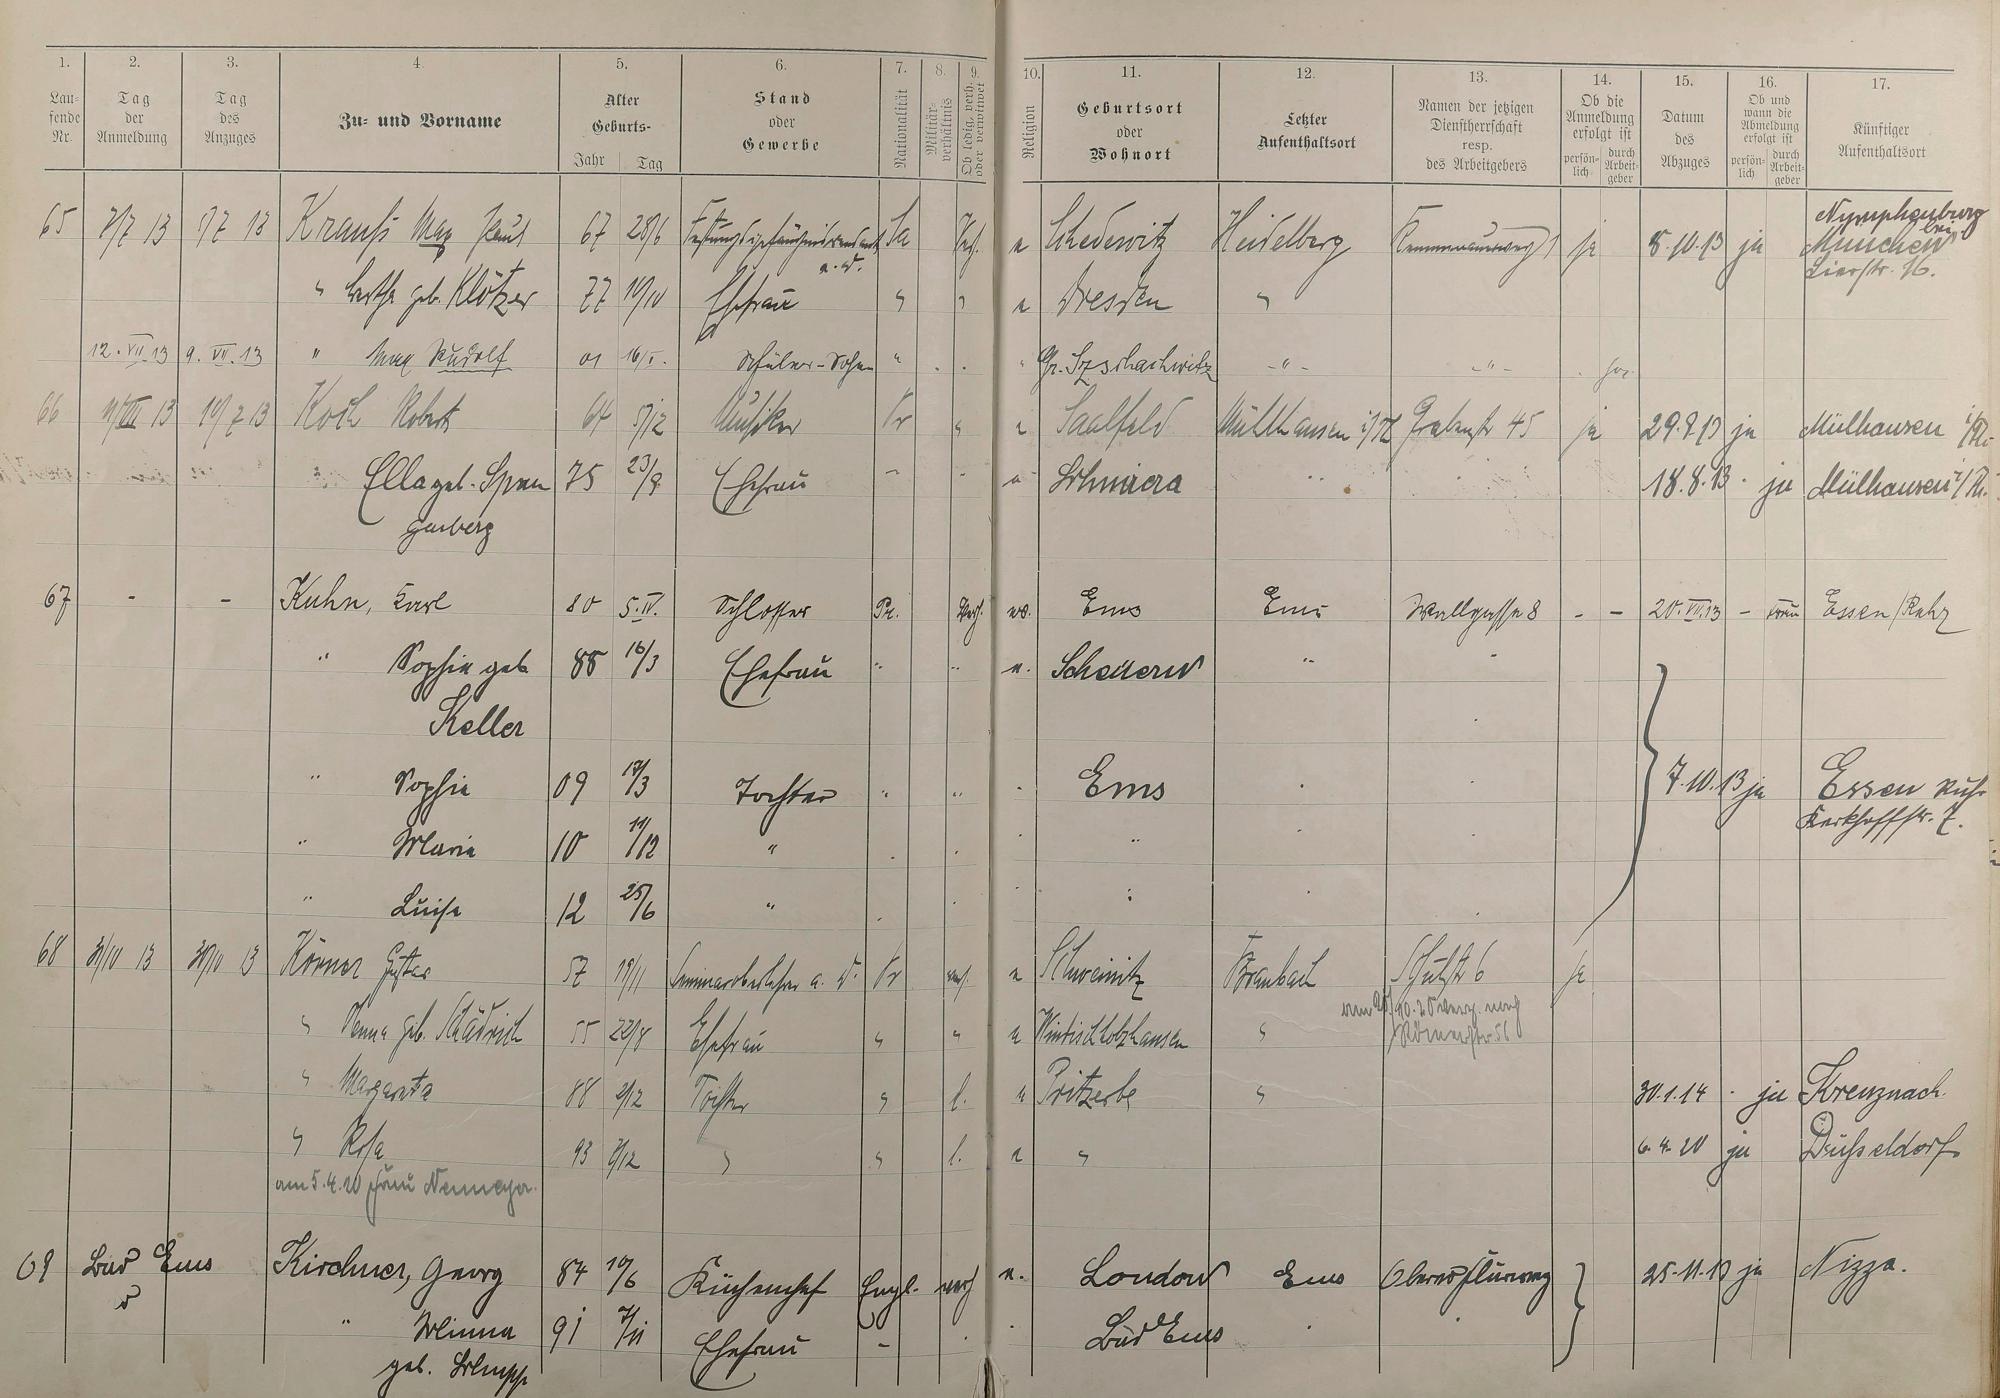 1. 2. 3. 4. 5. 6. 7. 8. 9. 10. 11. 12. 13. 14. 15. 16. 17.
Lau-
fende
Nr.
Tag
der
Anmeldung
Tag
des
Anzuges
Zu- und Vorname
Alter
Geburts-
Jahr Tag
Stand
oder
Gewerbe
Nationalität
Militär-
verhältnis
Ob ledig, verh.
oder verwitwet
Religion
Geburtsort
oder
Wohnort
Letzter
Aufenthaltsort
Namen der jetzigen
Dienstherrschaft
resp.
des Arbeitgebers
Ob die
Anmeldung
erfolgt ist
persön-
lich
durch
Arbeit-
geber
Datum
des
Abzuges
Ob und
wann die
Abmeldung
erfolgt ist
persön-
lich
durch
Arbeit-
geber
Künftiger
Aufenthaltsort
Nymphenburg
bei
65 7/7 13 1/7 13 Krauß Max Paul 67 28/6 Sa Verh. Schedewitz Heidelberg ja 8.10.13 ja München
a. D. Zierstr. 16.
" Bertha geb. Klötzer 77 10/10 Ehefrau " " Dresden "
12. VII 13 9. VII. 13 " Max Rudolf 01 16/1. Schüler-Sohn " " Gr. Zschachwitz - " - - " -
66 11/VII 13 10/7 13 Koch Robert 64 5/12 Musiker Pr " Saalfeld Mühlhausen i/Th Grabenstr 45 ja 29.8.13 ja Mülhausen i/Th.
Ella geb. Span 75 23/8 Ehefrau 18.8.13 ja Mülhausen i/Th.
genberg
67 - - Kuhn, Karl 80 5. IV. Schlosser Pr. Verh. Ems Ems Wallgasse 8 - - 20. VII. 13 - Frau Essen/Ruhr
" Sophie geb 88 16/3 Ehefrau " " Scheuern "
Keller
" Sophie 09 17/3 Tochter " " Ems 7.10.13 ja Essen Ruhr
Kerkhoffstr. 7.
" Maria 10 11/12 " "
" Luise 12 25/6 "
68 31/10 13 30/10 13 Körner Gustav 57 19/11 Seminaroberlehrer a. D. Pr verh. Schweinitz Braubach Schulstr 6 ja
Römerstr. 56
" geb. Schädrich 55 22/8 Ehefrau " " Windischholzhausen "
" Margareta 88 2/12 Tochter " l. Pritzerbe " 30.1.14 ja Kreuznach.
" Rosa 93 7/12 " " l. " 6.4.20 ja Düsseldorf
am 5.4.20 Frau Nemeyer.
69 Bad Ems Kirchner, Georg 84 10/6 Küchenchef Engl. verh London Ems Oberer Flurweg 25.11.13 ja Nizza.
" Minna 91 7/11 Ehefrau - Bad Ems
geb.